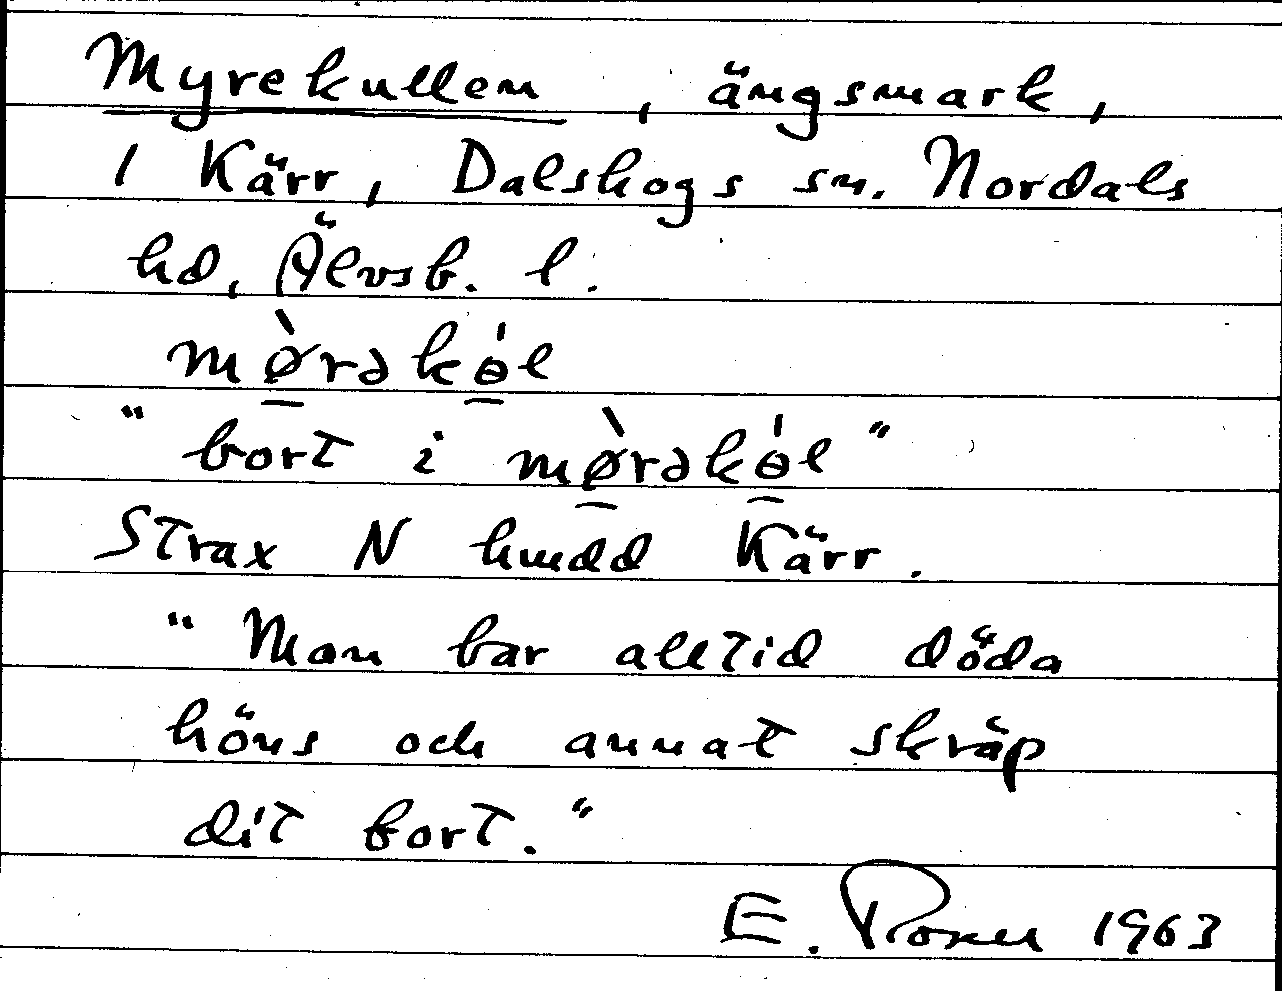 Myrekullen, ängsmark,
1 Kärr, Dalskogs sn. Nordals
hd, Älvsb. l.
mø̀rəkɵ́l
"bort i mø̀rəkɵ́l"
Strax N hmdd Kärr.
"Man bar alltid döda
höns och annat skräp
dit bort."
E. 1963